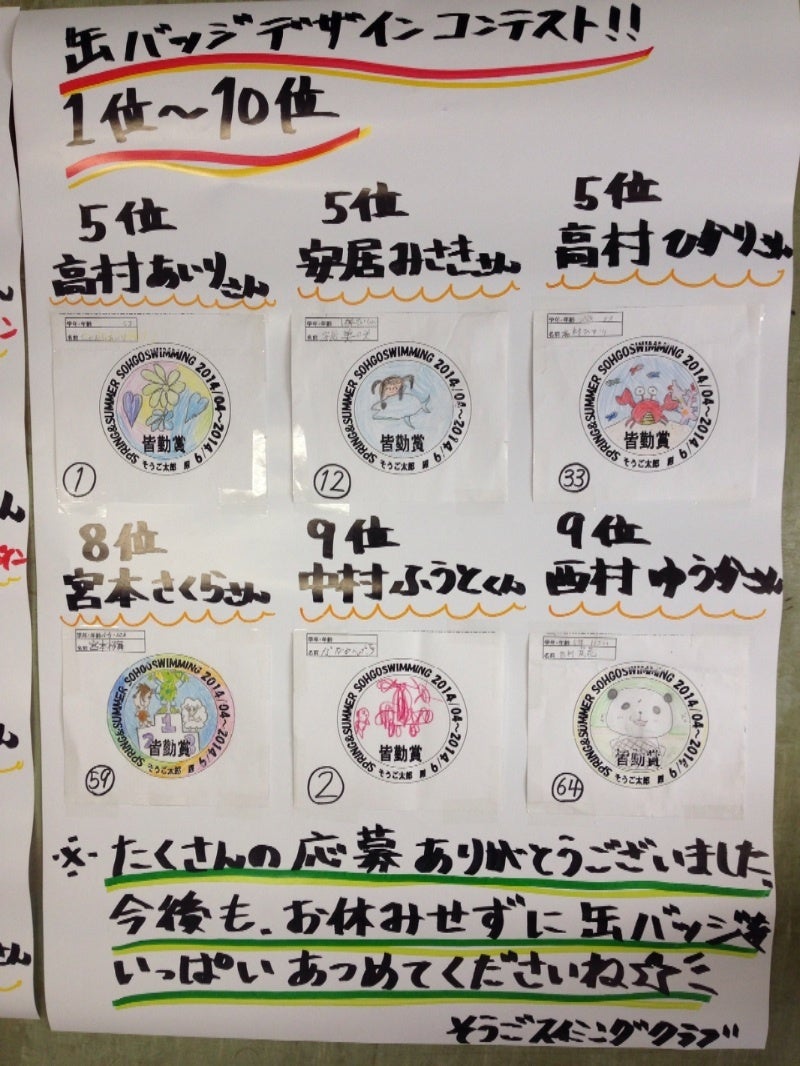 缶バッジデザインコンテスト!!
1位～10位
5位
高村あいりさん
5位
安居みさきさん
5位
高村ひかりさん
学年・年齢
名前
SPRING&SUMMER SOHGOSWIMMING 2014/04~2014/9
皆勤賞
そうご太郎 殿
①
学年・年齢
名前
SPRING&SUMMER SOHGOSWIMMING 2014/04~2014/9
皆勤賞
そうご太郎 殿
⑫
学年・年齢
名前
SPRING&SUMMER SOHGOSWIMMING 2014/04~2014/9
皆勤賞
そうご太郎 殿
㉝
8位
宮本さくらさん
9位
中村ふうとくん
9位
西村ゆうかさん
学年・年齢
名前
SPRING&SUMMER SOHGOSWIMMING 2014/04~2014/9
1
皆勤賞
そうご太郎 殿
59
学年・年齢
名前
SPRING&SUMMER SOHGOSWIMMING 2014/04~2014/9
皆勤賞
そうご太郎 殿
②
学年・年齢
名前
SPRING&SUMMER SOHGOSWIMMING 2014/04~2014/9
皆勤賞
そうご太郎 殿
64
※たくさんの応募ありがとうございました。
今後も、お休みせずに缶バッジを
いっぱいあつめてくださいね☆
そうごスイミングクラブ